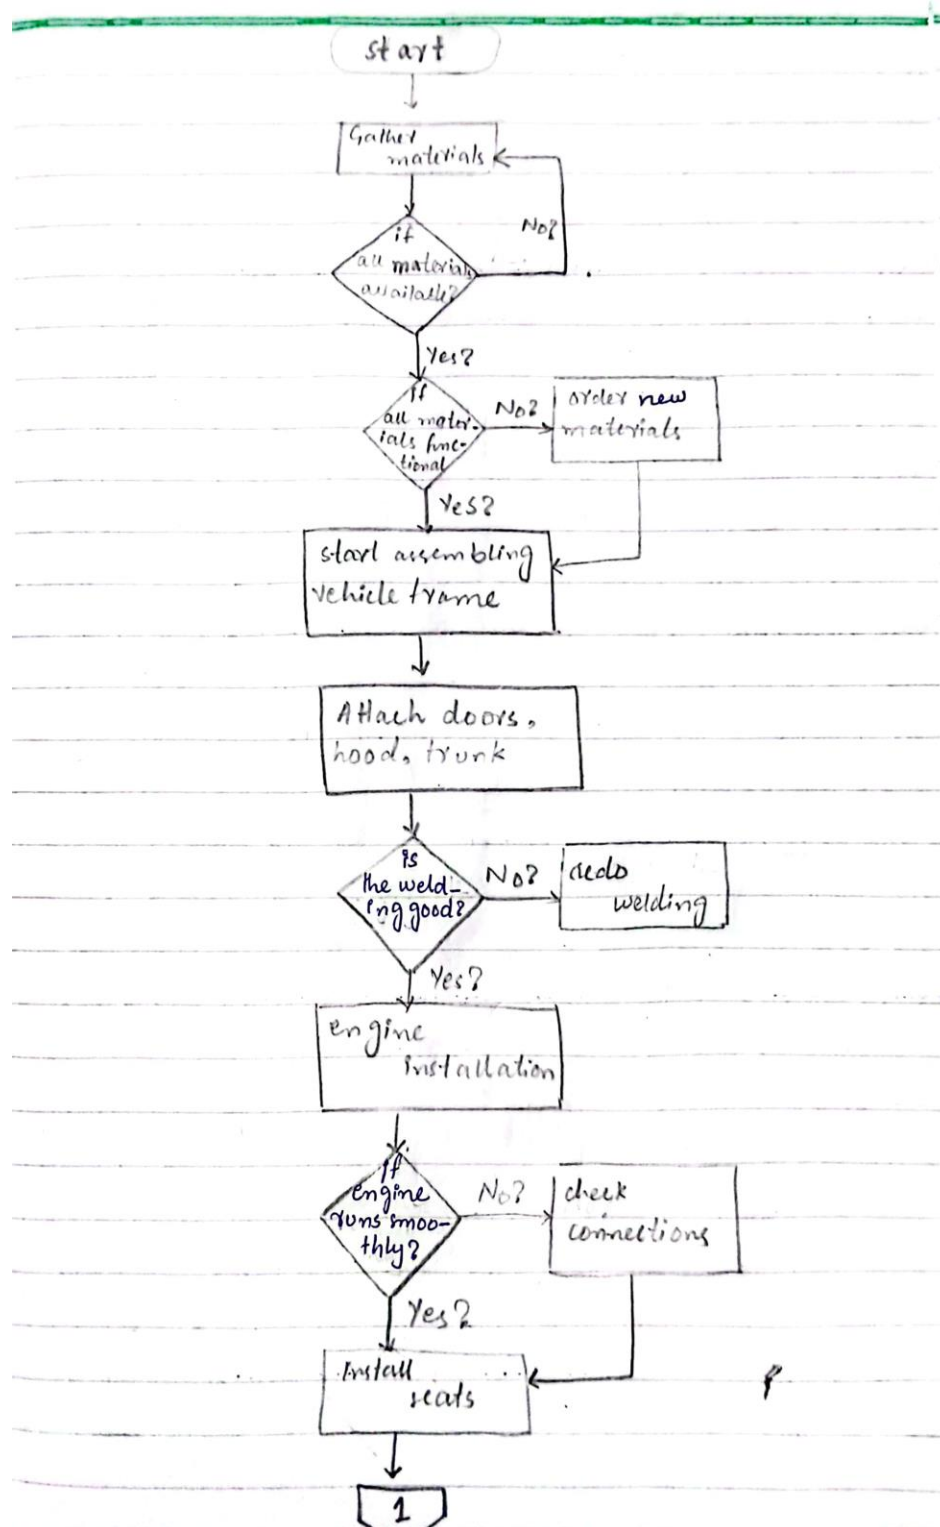 start
Gather
materials
No?
if
all materials
available?
Yes?
If
all mater-
ials func-
tional
No?
order new
materials
Yes?
start assembling
vehicle frame
Attach doors,
hood, trunk
is
the weld-
ing good?
No?
redo
welding
Yes?
engine
installation
If
engine
runs smoo-
thly?
No?
check
connections
Yes?
Install
seats
1